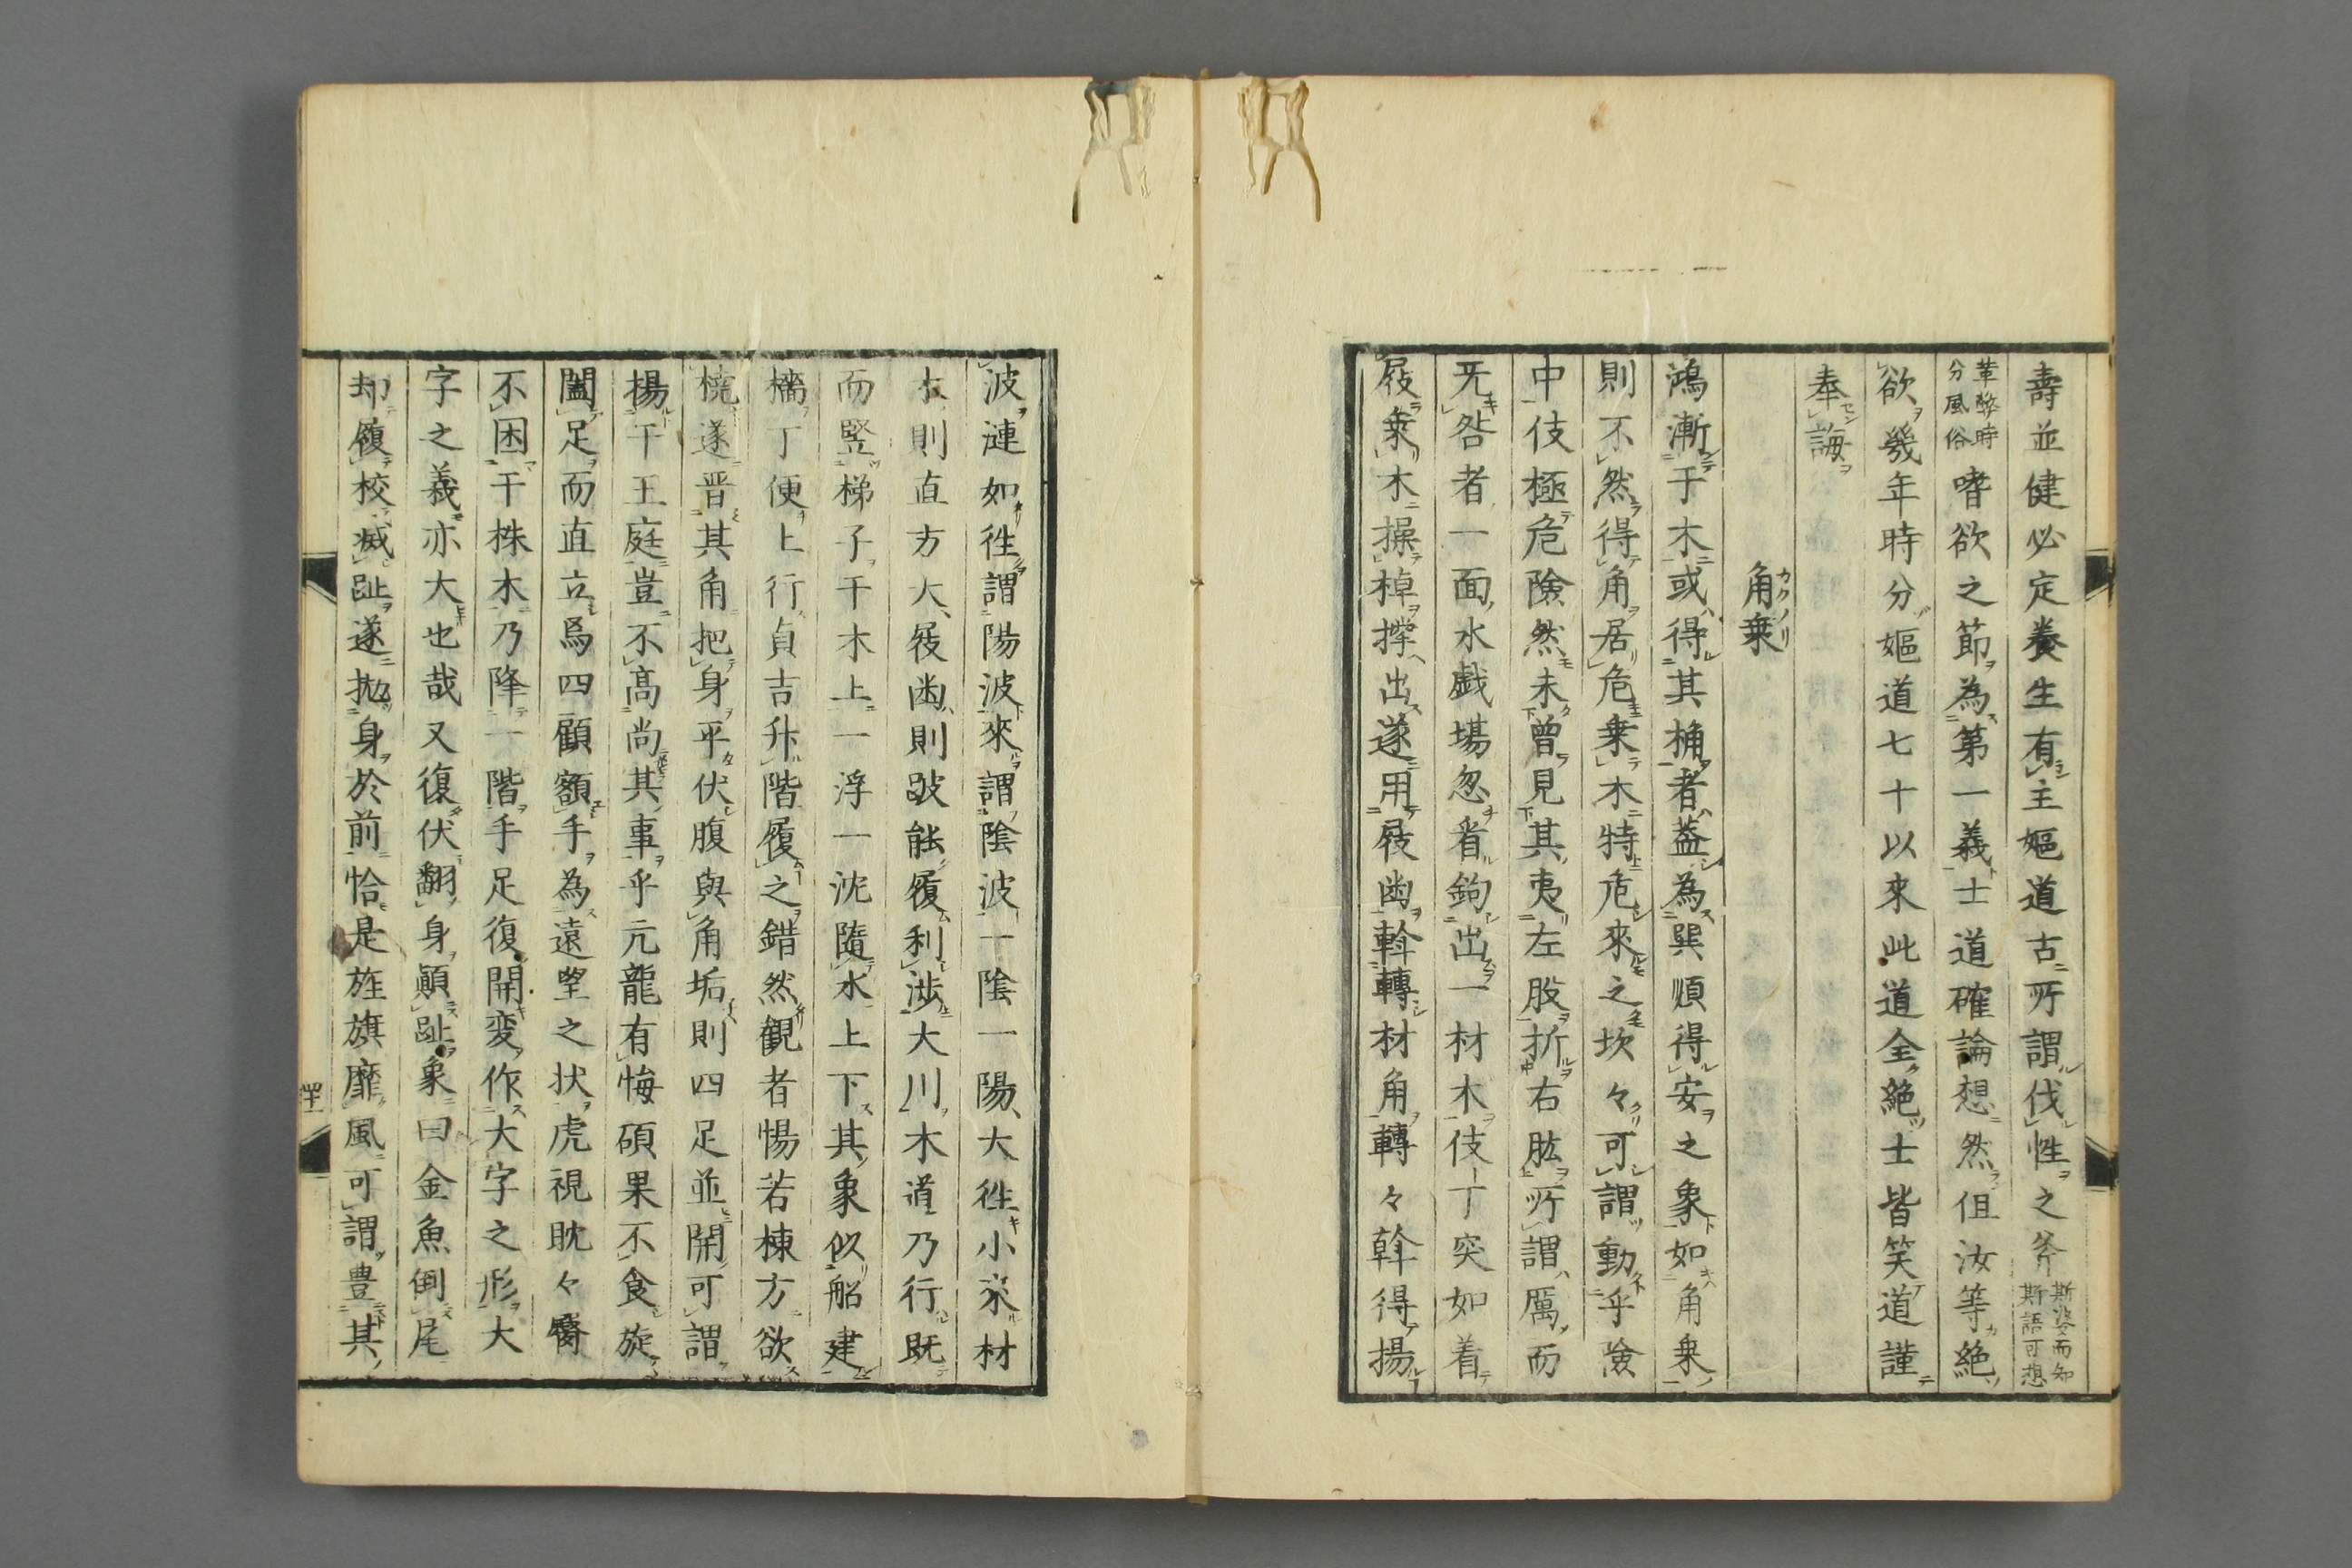 壽並健必定養生有主嫗道古所謂伐性之斧斯婆而知斯語可想
革弊時分風俗嗜欲之節為第一義士道確論想然但汝等絶
欲幾年時分嫗道七十以來此道全絶士皆笑道謹
奉誨
角乗カクノリ
鴻漸于木或得其桷者蓋為巽順得安之象如角乗
則不然得角居危乗木特危來之坎々可謂動乎險
中伎極危險然未曾見其夷左股折右肱所謂厲而
无咎者一面水戯場忽看鉤出一材木伎丁突如着
屐乗木操棹撑出遂用屐齒斡轉材角轉々斡得揚
波漣如徃謂陽波來謂陰波一陰一陽大徃小來材
木則直方大屐齒則跛能履利渉大川木道乃行既
而竪梯子于木上一浮一沈隨水上下其象似船建
檣丁便上行貞吉升階履之錯然観者惕若棟方欲
橈遂晋其角把身平伏腹與角垢則四足並開可謂
揚于王庭豈不高尚其事乎亢龍有悔碩果不食旋
闔足而直立爲四顧額手為遠望之状虎視眈々臀
不困于株木乃降一階手足復開変作大字之形大
字之義亦大也哉又復伏翻身顛趾象曰金魚倒尾
却履校滅趾遂抛身於前恰是旌旗靡風可謂豊其